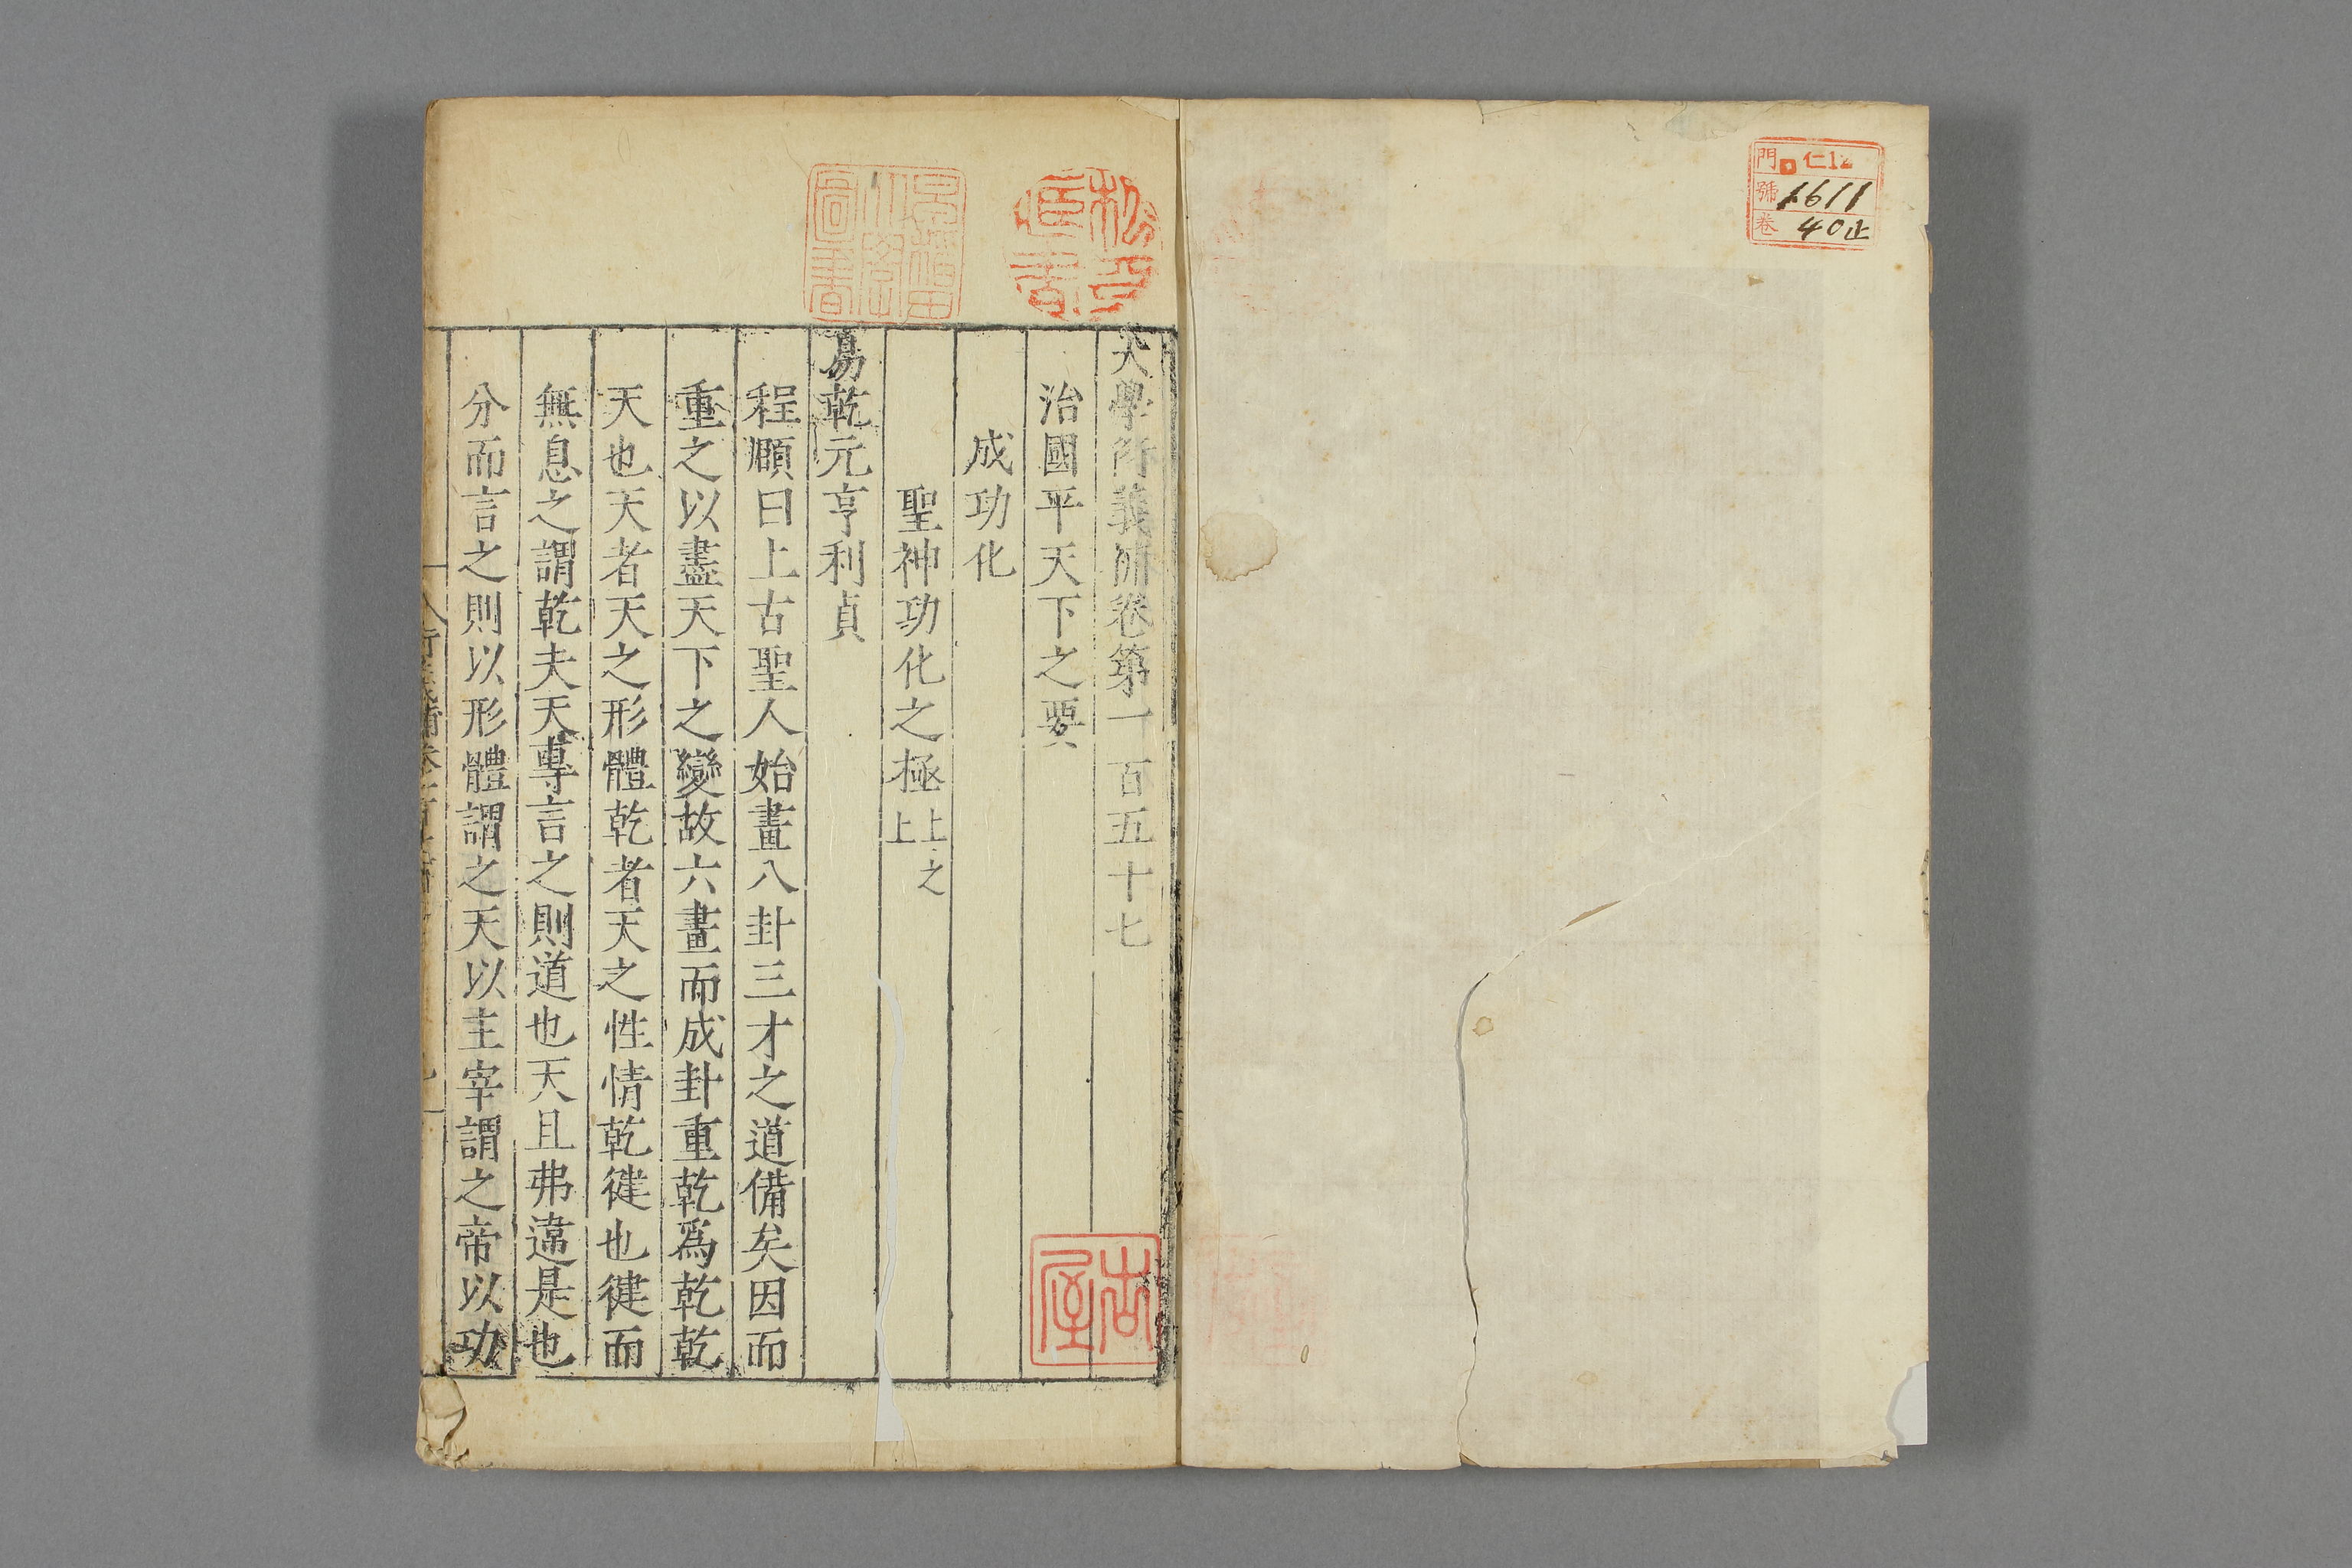 門 仁12
號 1611
卷 40止
大學衍義補卷第一百五十七
治國平天下之要
成功化
聖神功化之極上之上
易乾元亨利貞
程頤曰上古聖人始畫八卦三才之道備矣因而
重之以盡天下之變故六畫而成卦重乾爲乾乾
天也天者天之形體乾者天之性情乾徤也徤而
無息之謂乾夫天專言之則道也天且弗違是也
分而言之則以形體謂之天以主宰謂之帝以功